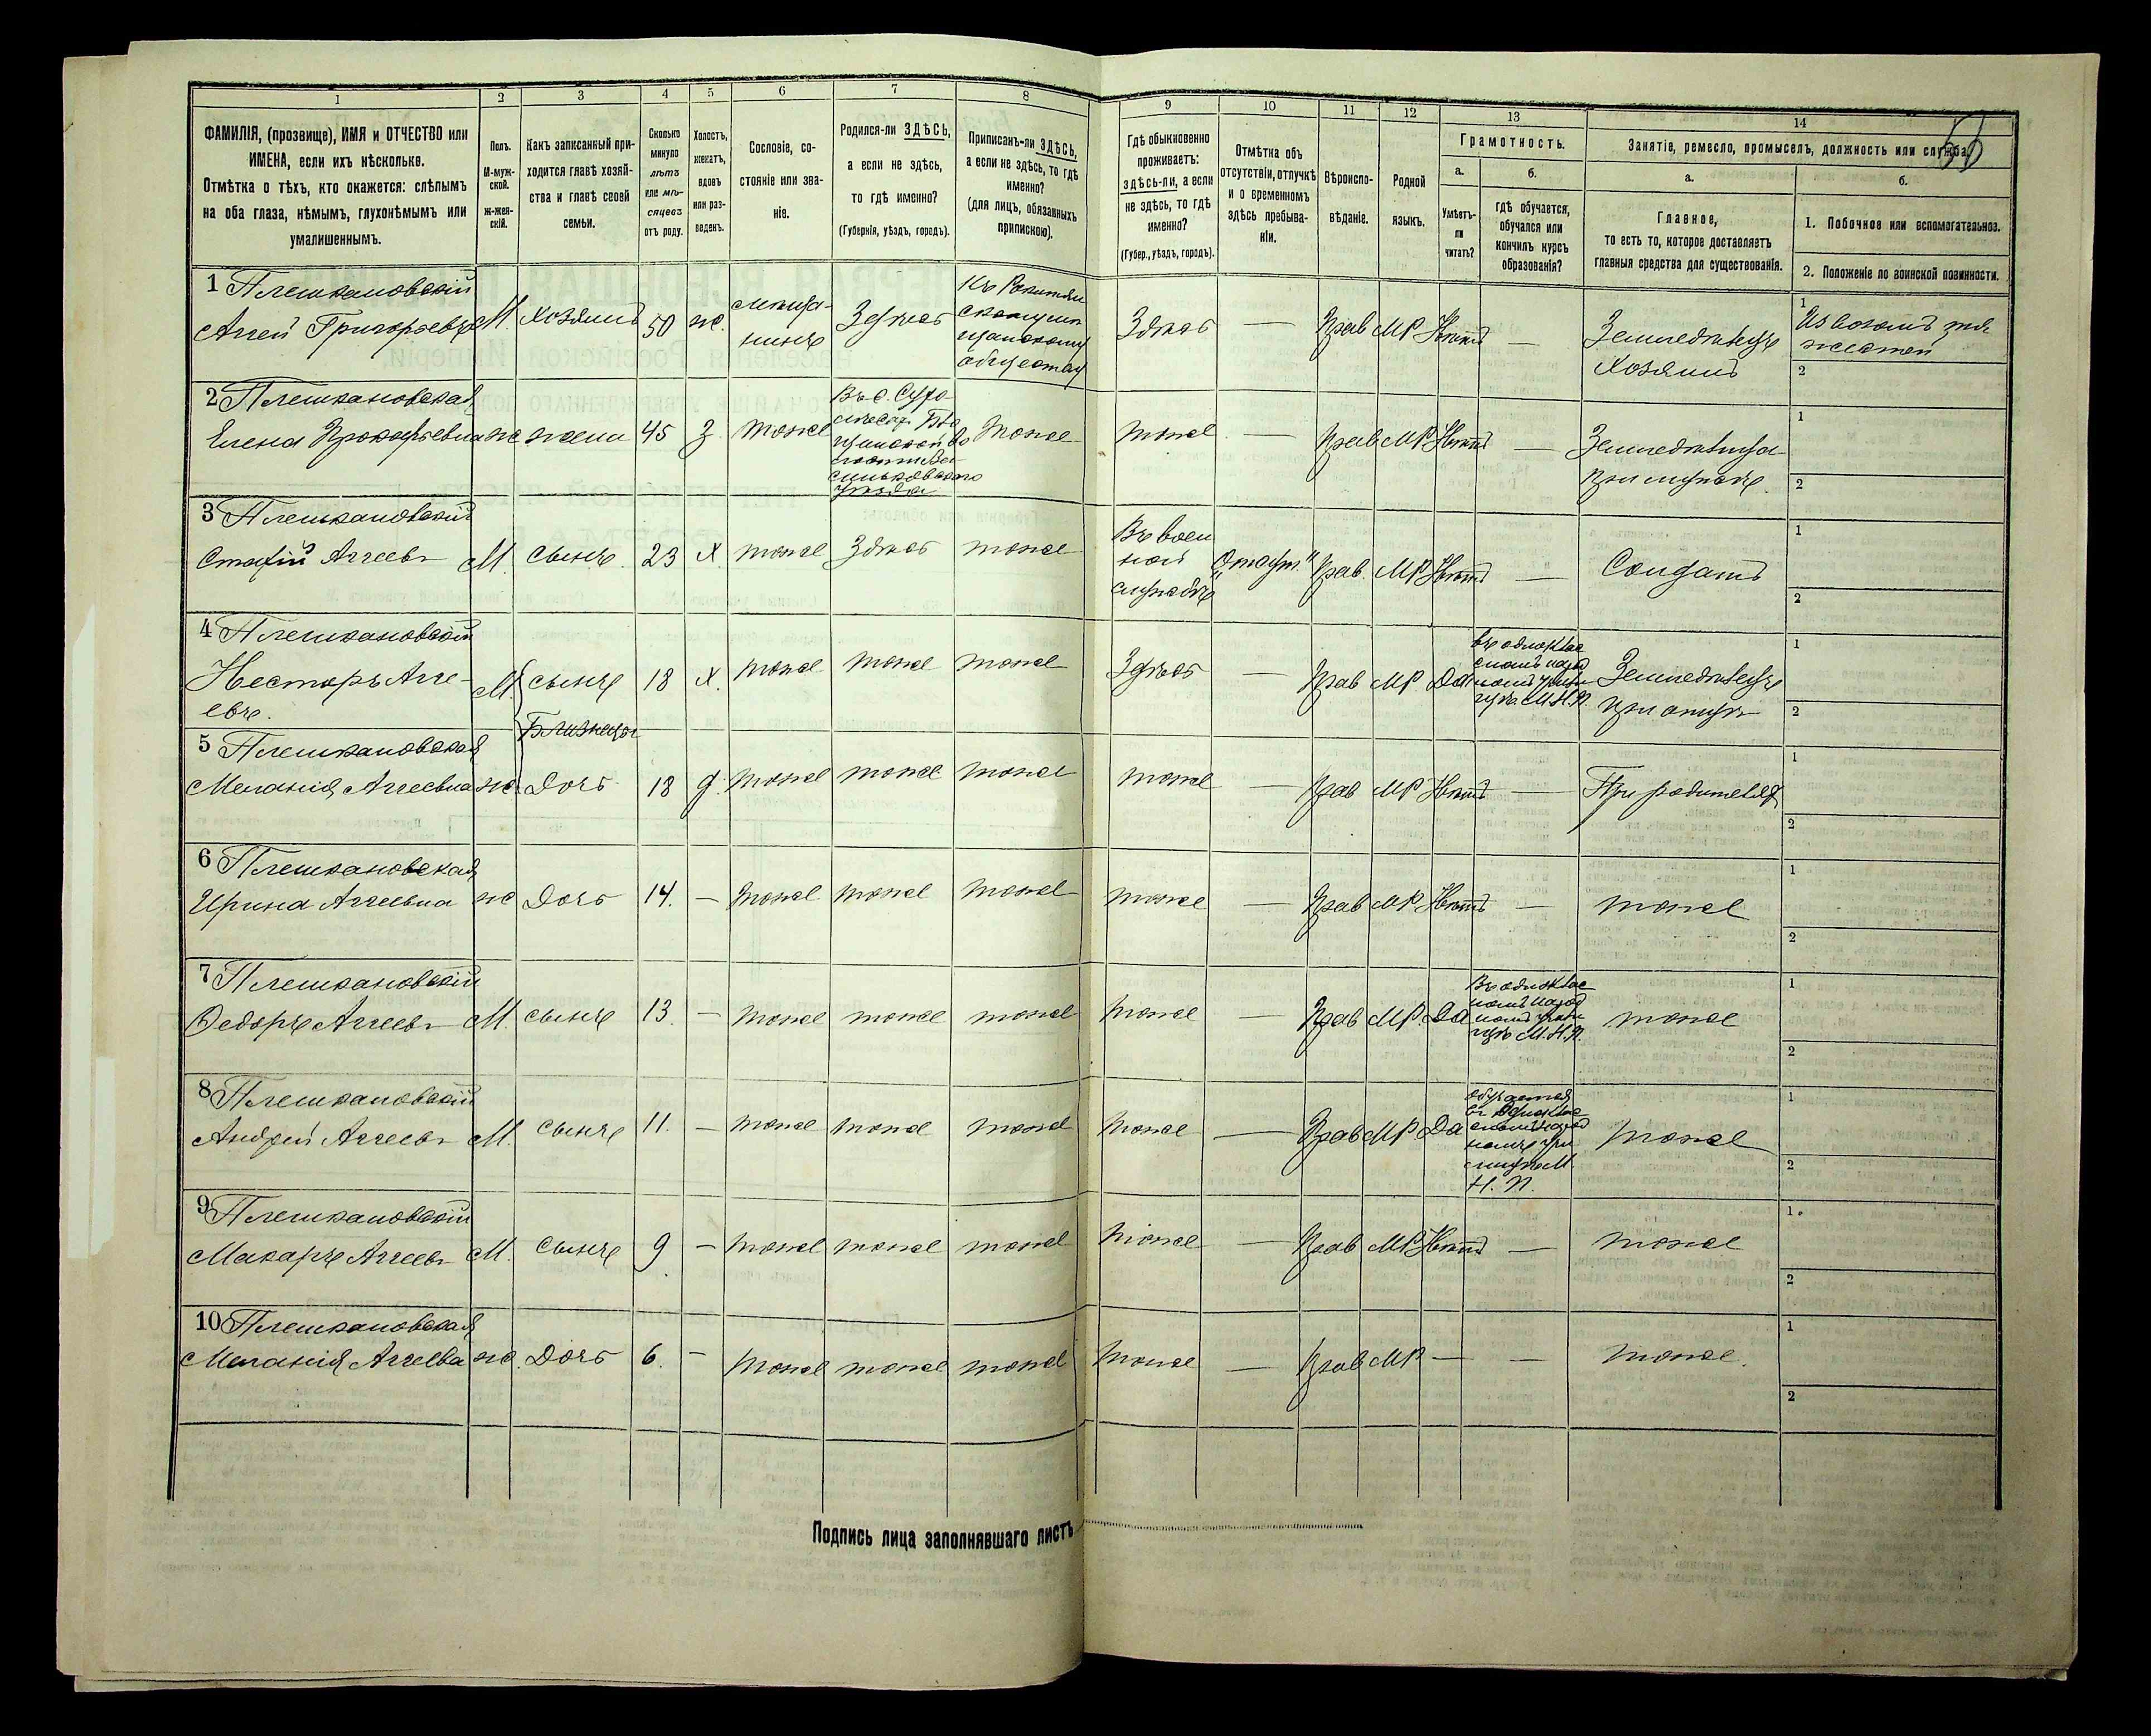 1 2 3 4 5 6 7 8 9 10 11 12 13 14
ФАМИЛІЯ, (прозвище), ИМЯ и ОТЧЕСТВО или
ИМЕНА, если ихъ нѣсколько.
Отмѣтка о тѣхъ, кто окажется: слѣпымъ
на оба глаза, нѣмымъ, глухонѣмымъ или
умалишеннымъ.
Полъ.
М-муж-
ской.
ж-жен-
скій.
Какъ записанный при-
ходится главѣ хозяй-
ства и главѣ своей
семьи.
Сколько
минуло
лѣтъ
или мѣ-
сяцевъ
отъ роду.
Холостъ,
женатъ,
вдовъ
или раз-
веденъ.
Сословіе, со-
стояніе или зва-
ніе.
Родился-ли ЗДѢСЬ,
а если не здѣсь,
то гдѣ именно?
(Губернія, уѣздъ, городъ).
Приписанъ-ли ЗДѢСЬ,
а если не здѣсь, то гдѣ
именно?
(для лицъ, обязанныхъ
припискою).
Гдѣ обыкновенно
проживаетъ:
здѣсь-ли, а если
не здѣсь, то гдѣ
именно?
(Губер., уѣздъ, городъ).
Отмѣтка объ
отсутствіи, отлучкѣ
и о временномъ
здѣсь пребыва-
ніи.
Вѣроиспо-
вѣданіе.
Родной
языкъ.
Грамотность.
а.
Умѣетъ-
ли
читать?
б.
гдѣ обучается,
обучался или
кончилъ курсъ
образованія?
Занятіе, ремесло, промыселъ, должность или служба.
а.
Главное,
то есть то, которое доставляетъ
главныя средства для существованія.
б.
1. Побочное или вспомогательное.
2. Положеніе по воинской повинности.
1 Плешкановскій
Аггей Григорьевъ М. Хозяинъ 50 ж. мѣща-
нинъ Здѣсь
обществу
Здѣсь — Прав МР Нѣтъ — Земледѣлецъ
Хозяинъ
1
2
2 Плешкановская
Елена Прокофьевна ж жена 45 З тоже
уѣзда
тоже
тоже — Прав МР Нѣтъ — Земледѣлица
при мужѣ.
1
2
3 Плешкановскій
Аггеевъ М. сынъ. 23 Х. тоже Здѣсь тоже
Въ воен
ной
службѣ
Прав. МР Нѣтъ — Солдатъ
1
2
4 Плешкановскій
Несторъ Агге-
евъ. М. сынъ 18 Х. тоже тоже тоже
Близнецы
Здѣсь — Прав МР. Да М.Н.П. Земледѣлецъ
при отцѣ
1
2
5 Плешкановская
Меланія Аггеевна ж Дочь 18 д. тоже тоже тоже
тоже — Прав МР Нѣтъ — При родителяхъ
1
2
6 Плешкановская
Ирина Аггеевна ж Дочь 14. — тоже тоже тоже
тоже — Прав МР Нѣтъ — тоже
1
2
7 Плешкановскій
Ѳедоръ Аггеевъ М. сынъ 13. — тоже тоже тоже
тоже — Прав МР. Да М.Н.П. тоже
1
2
8 Плешкановскій
Андрей Аггеевъ М. сынъ 11. — тоже тоже тоже
тоже — Прав МР Да
обучается
Н. П.
тоже
1
2
9 Плешкановскій
Макаръ Аггеевъ М. сынъ 9 — тоже тоже тоже
тоже — Прав МР Нѣтъ — тоже
1
2
10 Плешкановская
Меланія Аггеева ж. Дочь 6. — тоже тоже тоже
тоже — Прав МР — — тоже.
1
2
Подпись лица заполнявшаго листъ